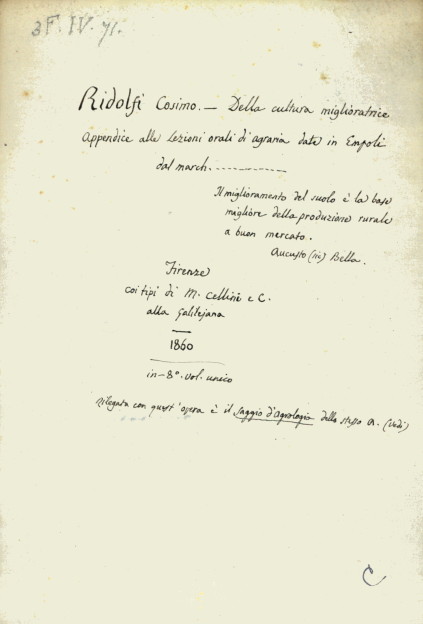 3F. IV. 71.
Ridolfi Cosimo. — Della cultura miglioratrice
Appendice alle Lezioni orali di agraria date in Empoli
dal march. ----------
Il miglioramento del suolo è la base
migliore della produzione rurale
a buon mercato.
Aucusto (sic) Bella.
Firenze
coi tipi di M. Cellini e C.
alla Galilejana
1860
in-8°. vol. unico
rilegata con quest'opera è il saggio d'agrologia dello stesso A. (Vedi)
C